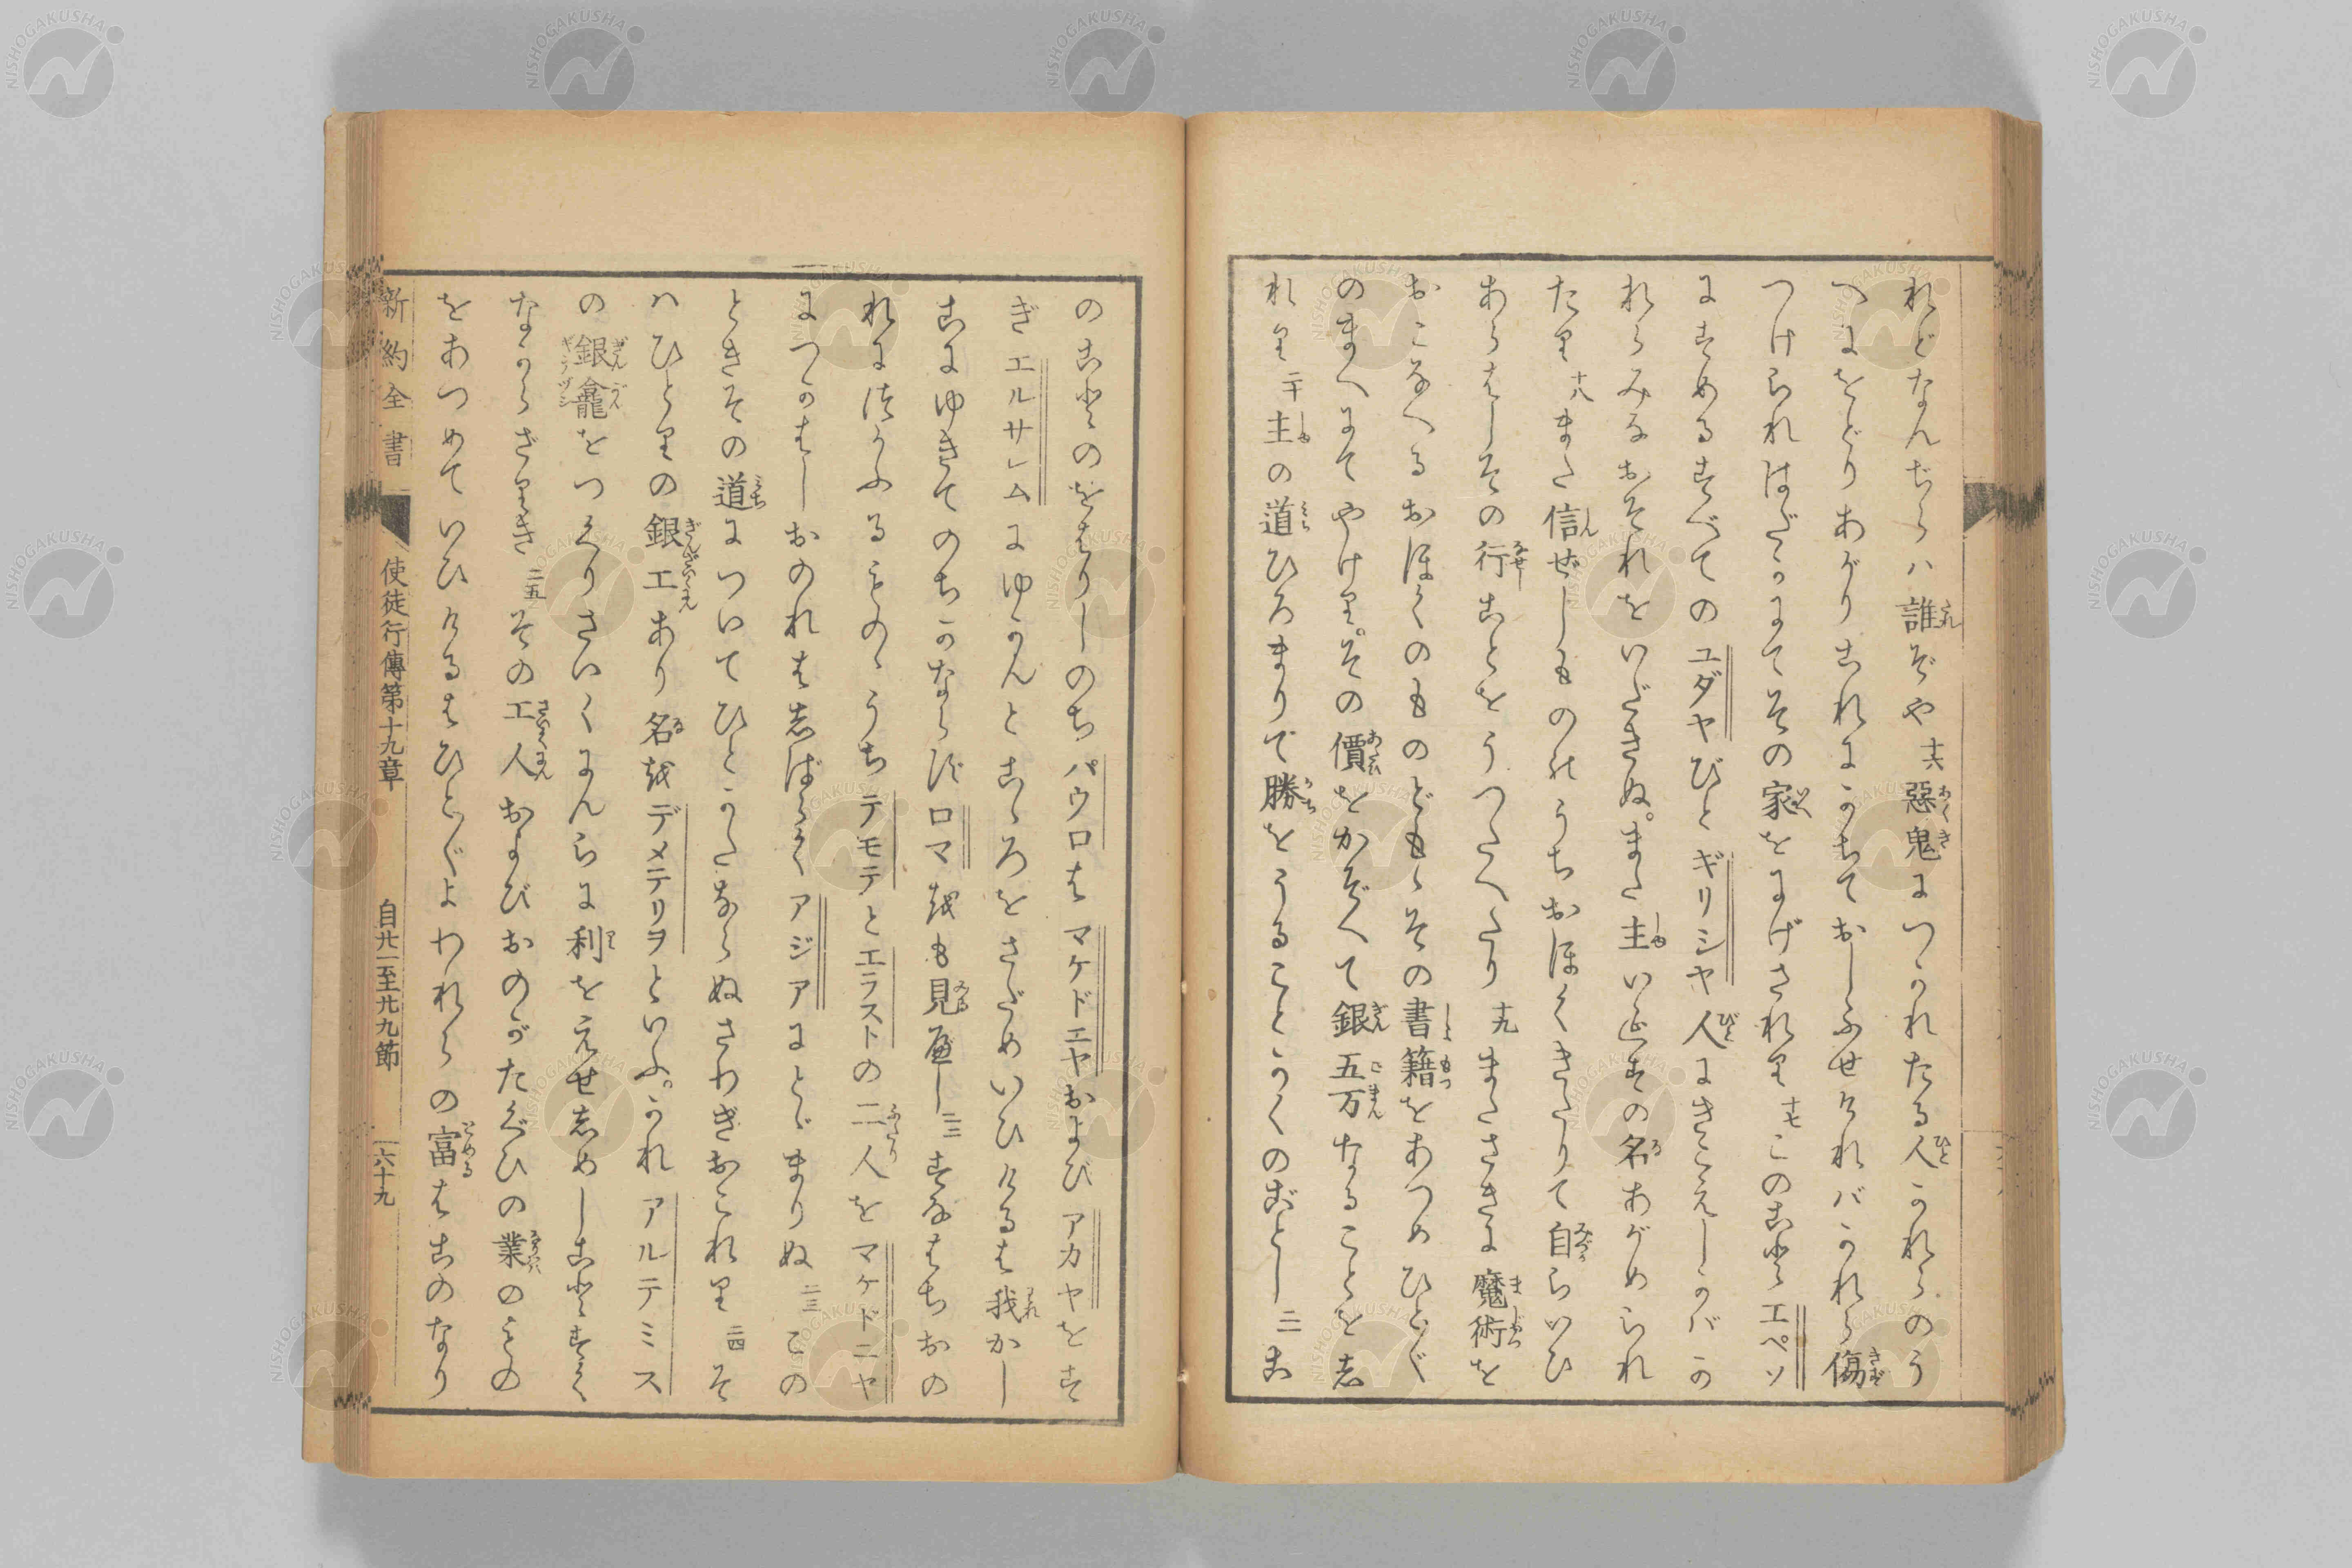 れどなんぢらハ誰ぞや十六惡鬼につかれたる人かれらのう
へにをどりあがりこれにかちておしふせければかれら傷
つけられはだかにてその家をにげされり十七このことエペソ
にすめるすべてのユダヤびとギリシヤ人にきこえしかバか
れらみなおそれをいだきぬ。また主いエスの名あがめられ
たり十八また信ぜしものゝうちおほくきたりて自らいひ
あらはしその行ことをうつたへたり十九またさきに魔術を
おこなへるおほくのものどもゝその書籍をあつめひとびと
のまへにてやけり。その價をかぞへて銀五万なることをし
れり二十主の道ひろまりて勝をうることかくのごとし二一こ
のことのをはりしのちパウロはマケドニヤおよびアカヤをす
ぎエルサレムにゆかんとこゝろをさだめいひけるは我かし
こにゆきてのちかならずロマをも見べし二二すなはちおの
れにつかふるものゝうちテモテとエラストの二人をマケドニヤ
につかはしおのれはしばらくアジアにとゞまりぬ二三この
ときその道についてひとかたならぬさわぎおこれり二四そ
ハひとりの銀工あり名をデメテリヲといふ。かれアルテミス
の銀龕をつくりさいくにんらに利をえせしめしことすく
なからざりき二五その工人およびおのがたぐひの業のもの
をあつめていひけるはひとびとよわれらの富はこのなり
新約全書 使徒行傳第十九章 自廿一至廿九節 一六十九